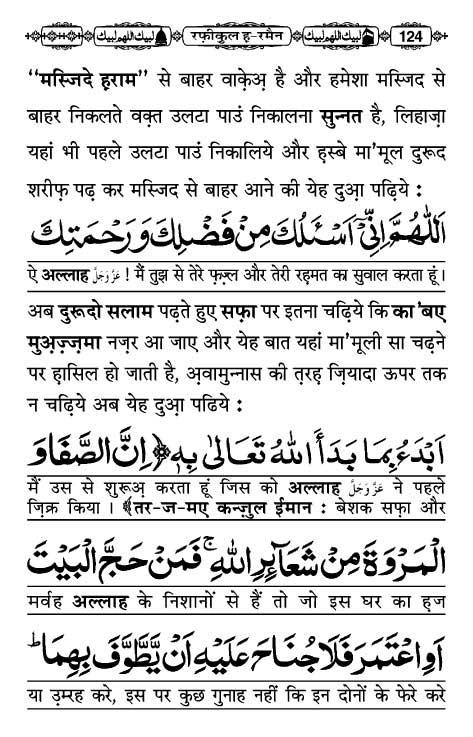 لبیك اللهم لبیك لبیك اللهم لبیك रफ़ीकुल ह़-रमैन 124
“मस्जिदे ह़राम” से बाहर वाक़ेअ़ है और हमेशा मस्जिद से
बाहर निकलते वक़्त उलटा पाउं निकालना सुन्नत है, लिहाज़ा
यहां भी पहले उलटा पाउं निकालिये और ह़स्बे मा’मूल दुरूद
शरीफ़ पढ़ कर मस्जिद से बाहर आने की येह दुआ़ पढ़िये :
اَللّٰهُمَّ اِنِّیْۤ اَسْئَلُكَ مِنْ فَضْلِكَ وَرَحْمَتِكَ
ऐ अल्लाह عَزَّوَجَلَّ ! मैं तुझ से तेरे फ़ज़्ल और तेरी रहमत का सुवाल करता हूं।
अब दुरूदो सलाम पढ़ते हुए सफ़ा पर इतना चढ़िये कि का’बए
मुअ़ज़्ज़मा नज़र आ जाए और येह बात यहां मा’मूली सा चढ़ने
पर हासिल हो जाती है, अ़वामुन्नास की त़रह़ ज़ियादा ऊपर तक
न चढ़िये अब येह दुआ़ पढिये :
اَبْدَءُ بِمَا بَدَأَ اللهُ تَعَالٰی بِهٖ ﴿ اِنَّ الصَّفَا وَ
मैं उस से शुरूअ़ करता हूं जिस को अल्लाह عَزَّوَجَلَّ ने पहले
ज़िक्र किया । ﴾तर-ज-मए कन्ज़ुल ईमान : बेशक सफ़ा और
الْمَرْوَةَ مِنْ شَعَآئِرِ اللهِ ۚ فَمَنْ حَجَّ الْبَیْتَ
मर्वह अल्लाह के निशानों से हैं तो जो इस घर का ह़ज
اَوِ اعْتَمَرَ فَلَا جُنَاحَ عَلَیْهِ اَنْ یَّطَّوَّفَ بِهِمَا ؕ
या उ़म्रह करे, इस पर कुछ गुनाह नहीं कि इन दोनों के फेरे करे